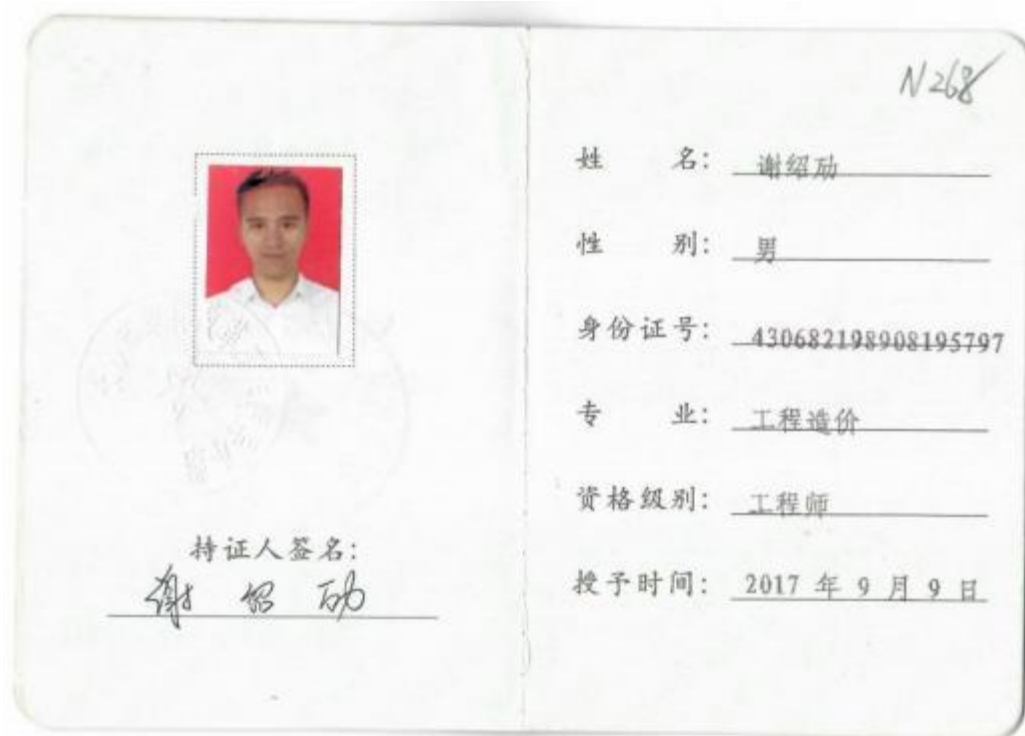 持证人签名:
谢绍劢
N268
姓 名: 谢绍劢
性 别: 男
身份证号: 430682198908195797
专 业: 工程造价
资格级别: 工程师
授予时间: 2017 年 9 月 9 日